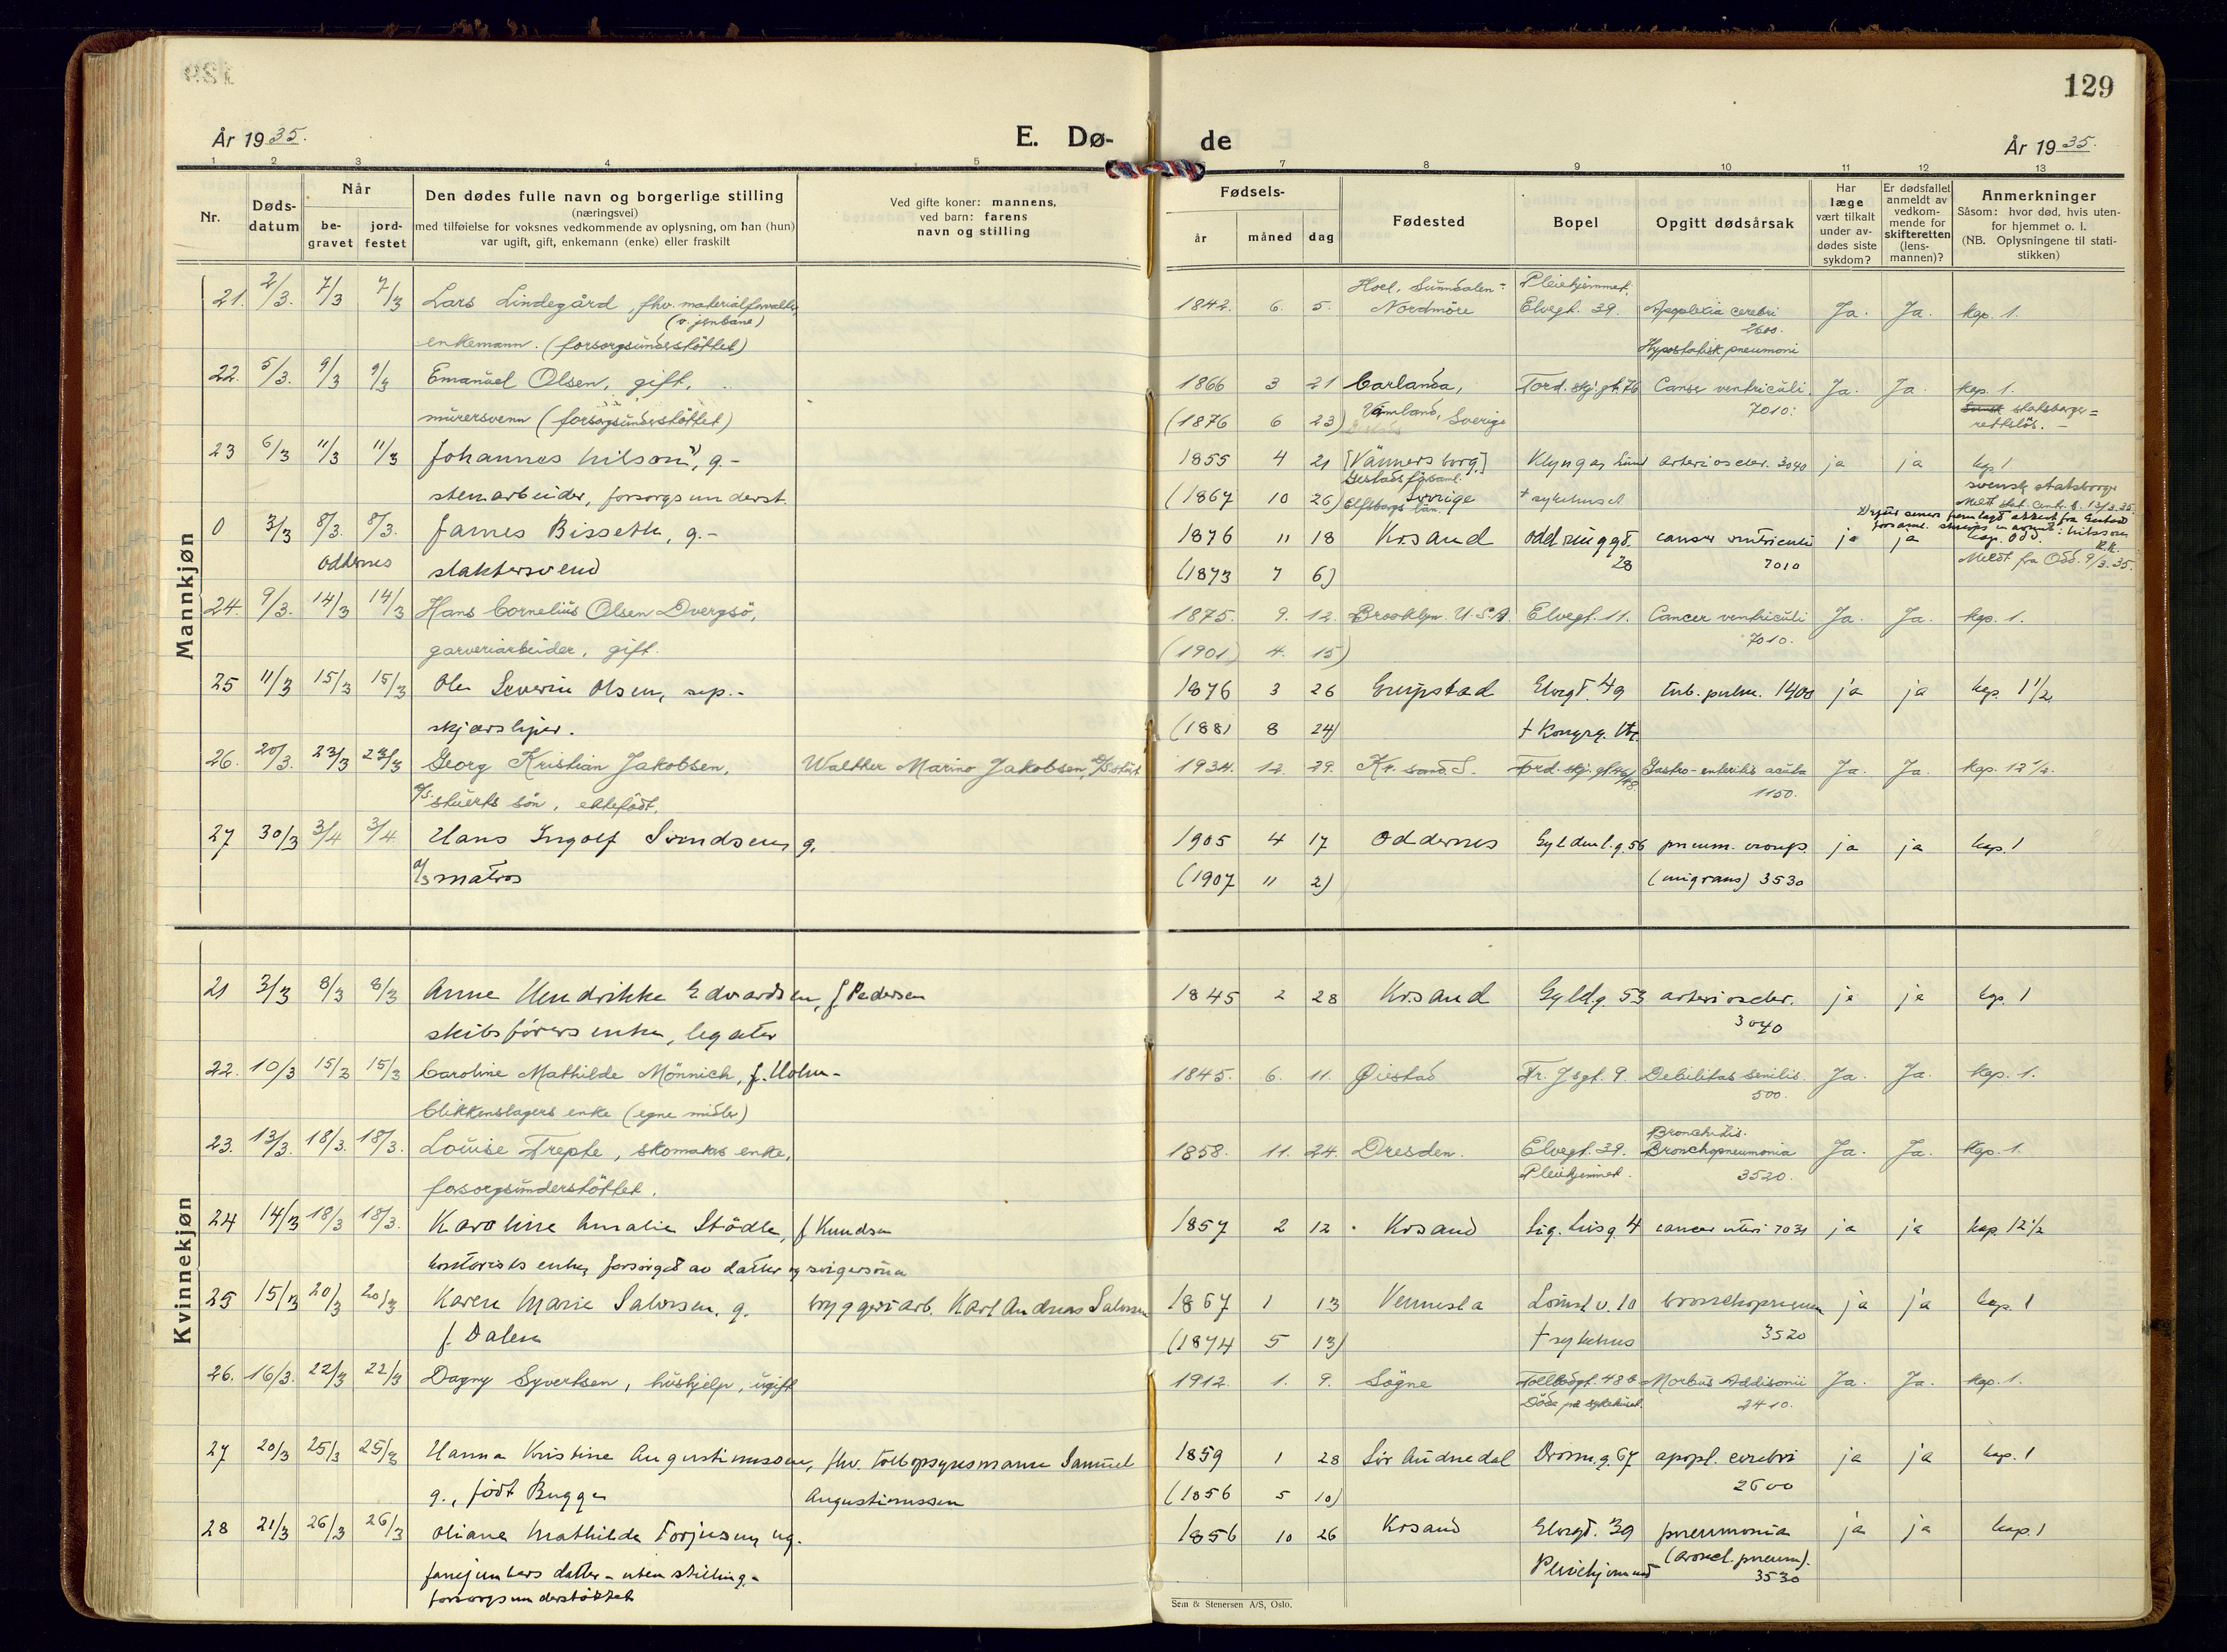 129
År 1935.
E. Dø-
de
År 1935.
1 2 3 4 5 7 8 9 10 11 12 13
Nr.
Døds-
datum
Når
be-
gravet
jord-
festet
Den dødes fulle navn og borgerlige stilling
(næringsvei)
med tilføielse for voksnes vedkommende av oplysning, om han (hun)
var ugift, gift, enkemann (enke) eller fraskilt
Ved gifte koner: mannens,
ved barn: farens
navn og stilling
Fødsels-
år
måned
dag
Fødested
Bopel
Opgitt dødsårsak
Har
læge
vært tilkalt
under av-
dødes siste
sykdom?
Er dødsfallet
anmeldt av
vedkom-
mende for
skifteretten
(lens-
mannen)?
Anmerkninger
Såsom: hvor død, hvis uten-
for hjemmet o. l.
(NB. Oplysningene til stati-
stikken)
Mannkjøn
21. 2/3. 7/3 7/3 Lars Lindegård, fhv. materialforvalter
(v. jenbane)
enkemann. (forsorgsunderstöttet)
1842. 6. 5. Hoel, Sunndalen-
Nordmöre
Pleiehjemmet.
Elvegt. 39. Apoplexia cerebri
2600.
Hypostatisk pneumoni
Ja. Ja. kap. 1.
22. 5/3. 9/3 9/3 Emanuel Olsen, gift,
murersvenn (forsorgsunderstöttet)
1866 3 21 Carlanda, Tord. skj. gt. 76 Cancer ventriculi. Ja. Ja. kap. 1.
(1876 6 23) Vämland, Sverige 7010. statsborger=
rettslös. -
23 6/3 11/3 11/3 Johannes Nilson, g.-
stenarbeider, forsorgsunderst.
1855 4 21 [Vännersborg.] arterioscler. 3040 ja ja kap 1
(1867 10 26) Elfsborgs län. Sverige † sykehuset
svensk statsborger
0 3/3 8/3. 8/3. James Bisseth, g.-
Oddernes slaktersvend
1876 11 18 Krsand Odd ringgt. cancer ventriculi ja ja kap. Odd.
28 7010 Meldt fra Odd. 9/3. 35.
(1873 7 6)
24. 9/3. 14/3 14/3 Hans Cornelius Olsen Dvergsö,
garveriarbeider, gift.
1875. 9. 12. Brooklyn. U.S.A. Elvegt. 11. Cancer ventriculi Ja. Ja. kap. 1.
(1901) 4. 15) 7010.
25 11/3 15/3 15/3 Ole Severin Olsen, sep.-
skjærsliper.
1876 3 26 Greipstad Elvegt 49 tub. pulm. 1400 ja ja kap. 1 1/2
(1881 8 24)
26. 20/3. 23/3 23/3 Georg Kristian Jakobsen, Walther Marino Jakobsen,
stuerts sön, ektefödt.
1934. 12. 29. Kr. sand S. Gastro-enteritis acuta Ja. Ja. kap. 12 1/2.
1150.
27 30/3 3/4 3/4 Hans Ingolf Svendsen g.
matros
1905 4 17 Oddernes Gyldenl. g. 56 pneum. croups. ja ja kap. 1
(1907 11 2) (migrans) 3530
Kvinnekjøn
21 3/3 8/3 8/3 Anne Hendrikke Edvardsen, f Pedersen
skibsförers enke, legater
1845 2 28 Krsand Gyld.g. 53 arterioscler. ja ja kap. 1
3040
22. 10/3 15/3 15/3 Caroline Mathilde Mönnich, f. Holm-
blikkenslagers enke (egne midler)
1845. 6. 11. Øiestad Fr. Jsgt. 9. Debilitas senilis. Ja. Ja. kap. 1.
500.
23. 13/3. 18/3. 18/3. Louise Trepte, skomakers enke,
forsorgsunderstöttet.
1858. 11. 24. Dresden. Elvegt. 39. Bronchitis.
Bronchopneumonia Ja. Ja. kap. 1.
Pleiehjemmet. 3520.
24 14/3 18/3 18/3. Karoline Amalie Stödle, f Knudsen
kontorists enke, forsörget av datter og svigersönn
1857 2 12 Krsand cancer uteri 7031 ja ja kap. 12 1/2
25 15/3 20/3 20/3 Karen Marie Salvesen. g. bryggeriarb. Karl Andreas Salvesen
f. Dalen
1867 1 13 Vennesla bronchopneum ja ja kap. 1
(1874 5 13) † sykehus 3520
26. 16/3. 22/3 22/3 Dagny Syvertsen, hushjelp, ugift
1912. 1. 9. Sögne Tollbodgt. 48 b Morbus Addisonii Ja. Ja. kap. 1.
Död på sykehuset. 2410.
27 20/3 25/3 25/3 Hanna Kristine Augustinussen, fhv. tollopsynsmann Samuel
g., födt Bugge Augustinussen
1859 1 28 Sör Audnedal Dronn.g. 67 apopl. cerebri ja ja kap. 1
(1856 5 10) 2600
28 21/3 26/3 26/3 Oliane Mathilde Torjusen, ug.
datter - uten stilling.-
forsorgsunderstöttet
1856 10 26 Krsand Elvegt. 39 pneumonia ja ja kap. 1
Pleiehjemmet (bronch. pneum).
3530
Sem & Stenersen A/S, Oslo.